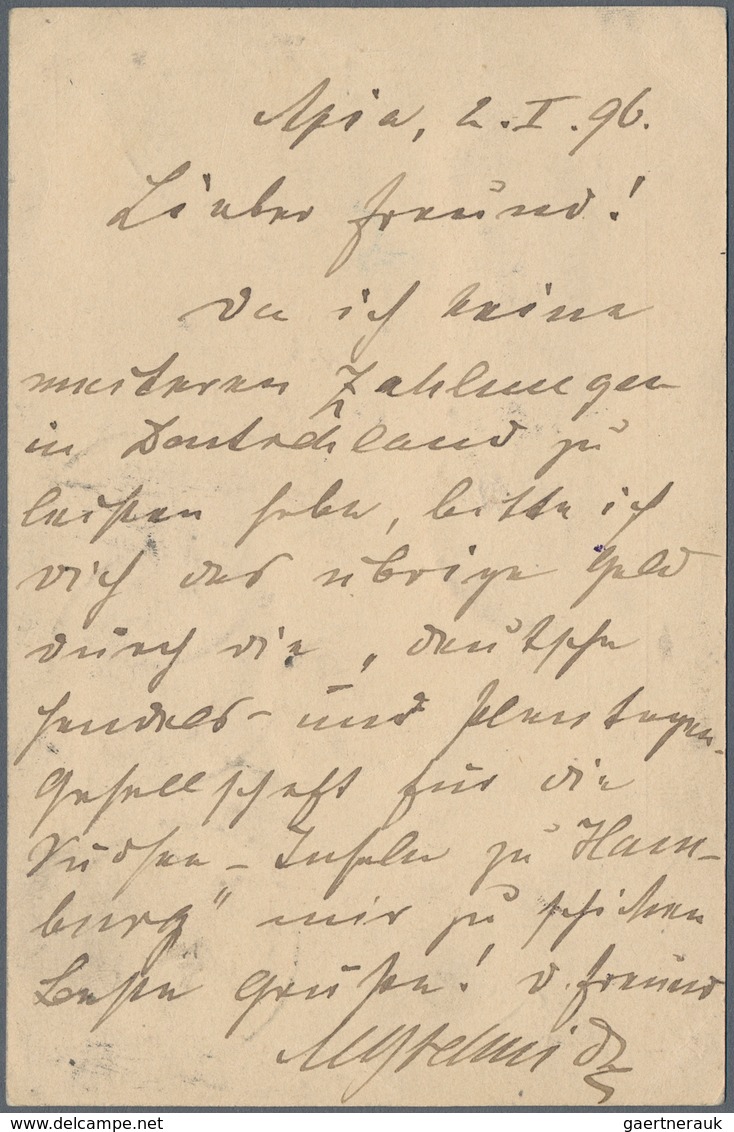 Apia, 2.I.96.
Lieber Freund!
Da ich keine
weiteren Zahlungen
in Deutschland zu
leisten habe, bitte ich
Dich das übrige Geld
durch die „Deutsche
Handels- und Plantagen-
Gesellschaft für die
Südsee-Inseln zu Ham-
burg" mir zu schicken
Beste Grüße! D. Freund
delcampe.net
gaertnerauk